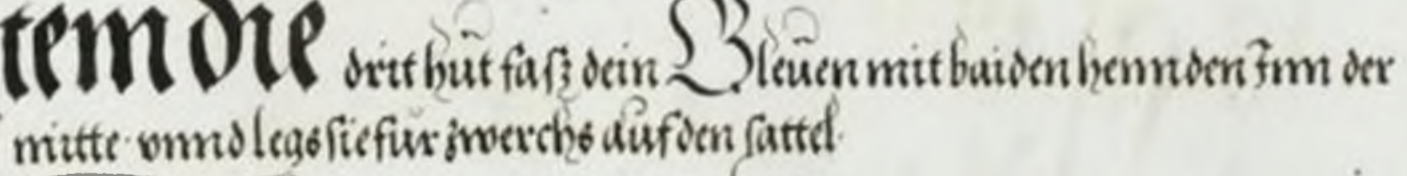 tem die drit hůt faſʒ dein Gleůen mit baiden hennden Inn der
mitte vnnd legs ſie fůr zwerchs aůf den ſattel